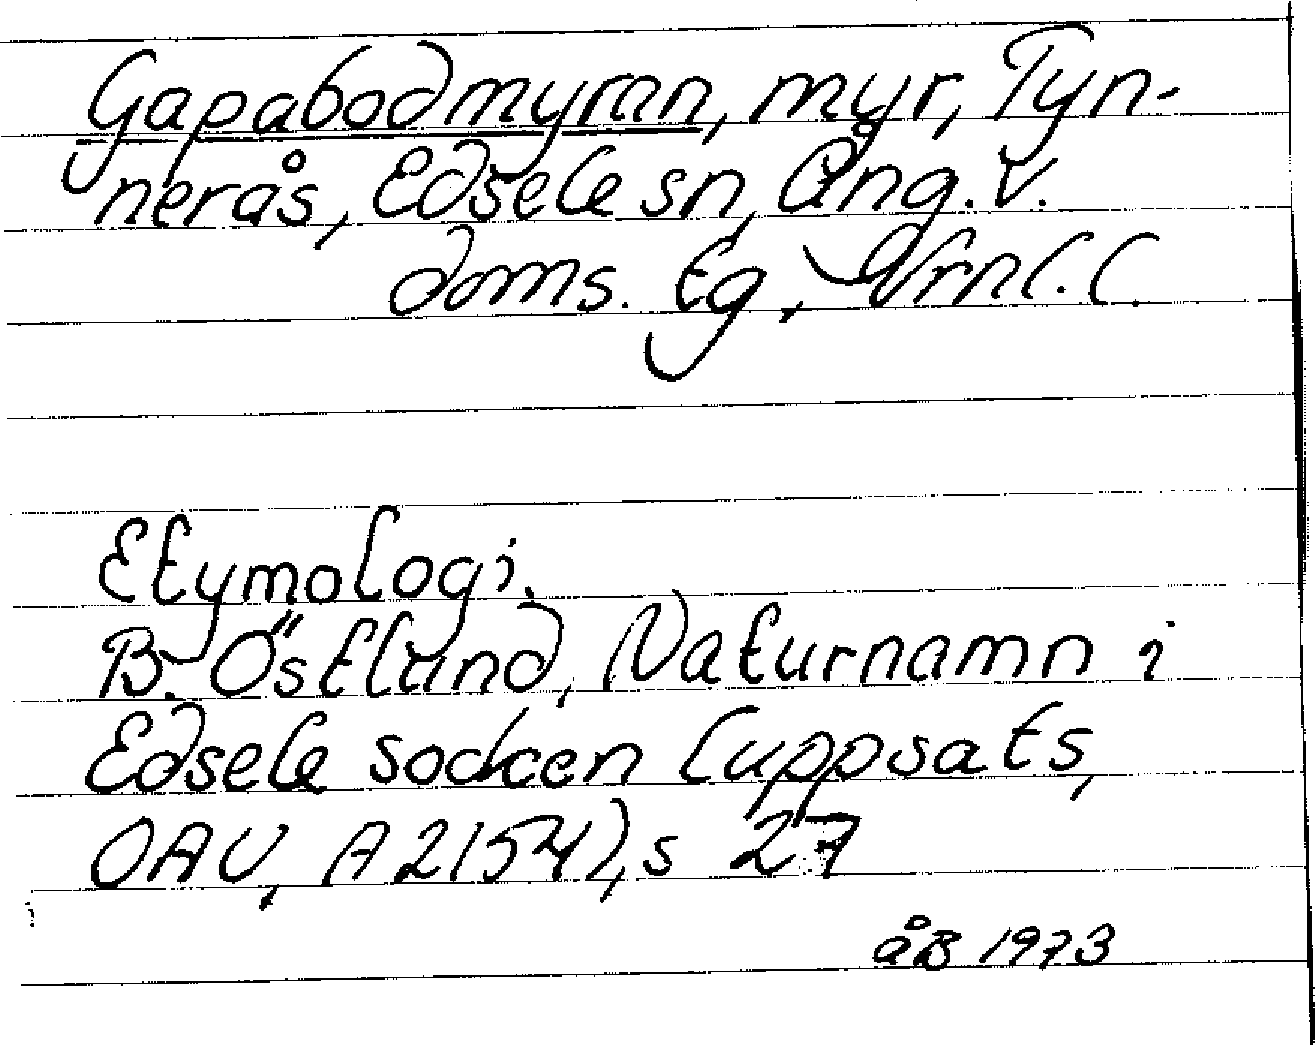 Gapabodmyran, myr, Tyn-
nerås, Edsele sn, Ång. V.
doms. tg, Vrnl. l.
Etymologi.
B. Östlund, Naturnamn i
Edsele socken (uppsats,
OAU, A 2154), s 27
åB 1973